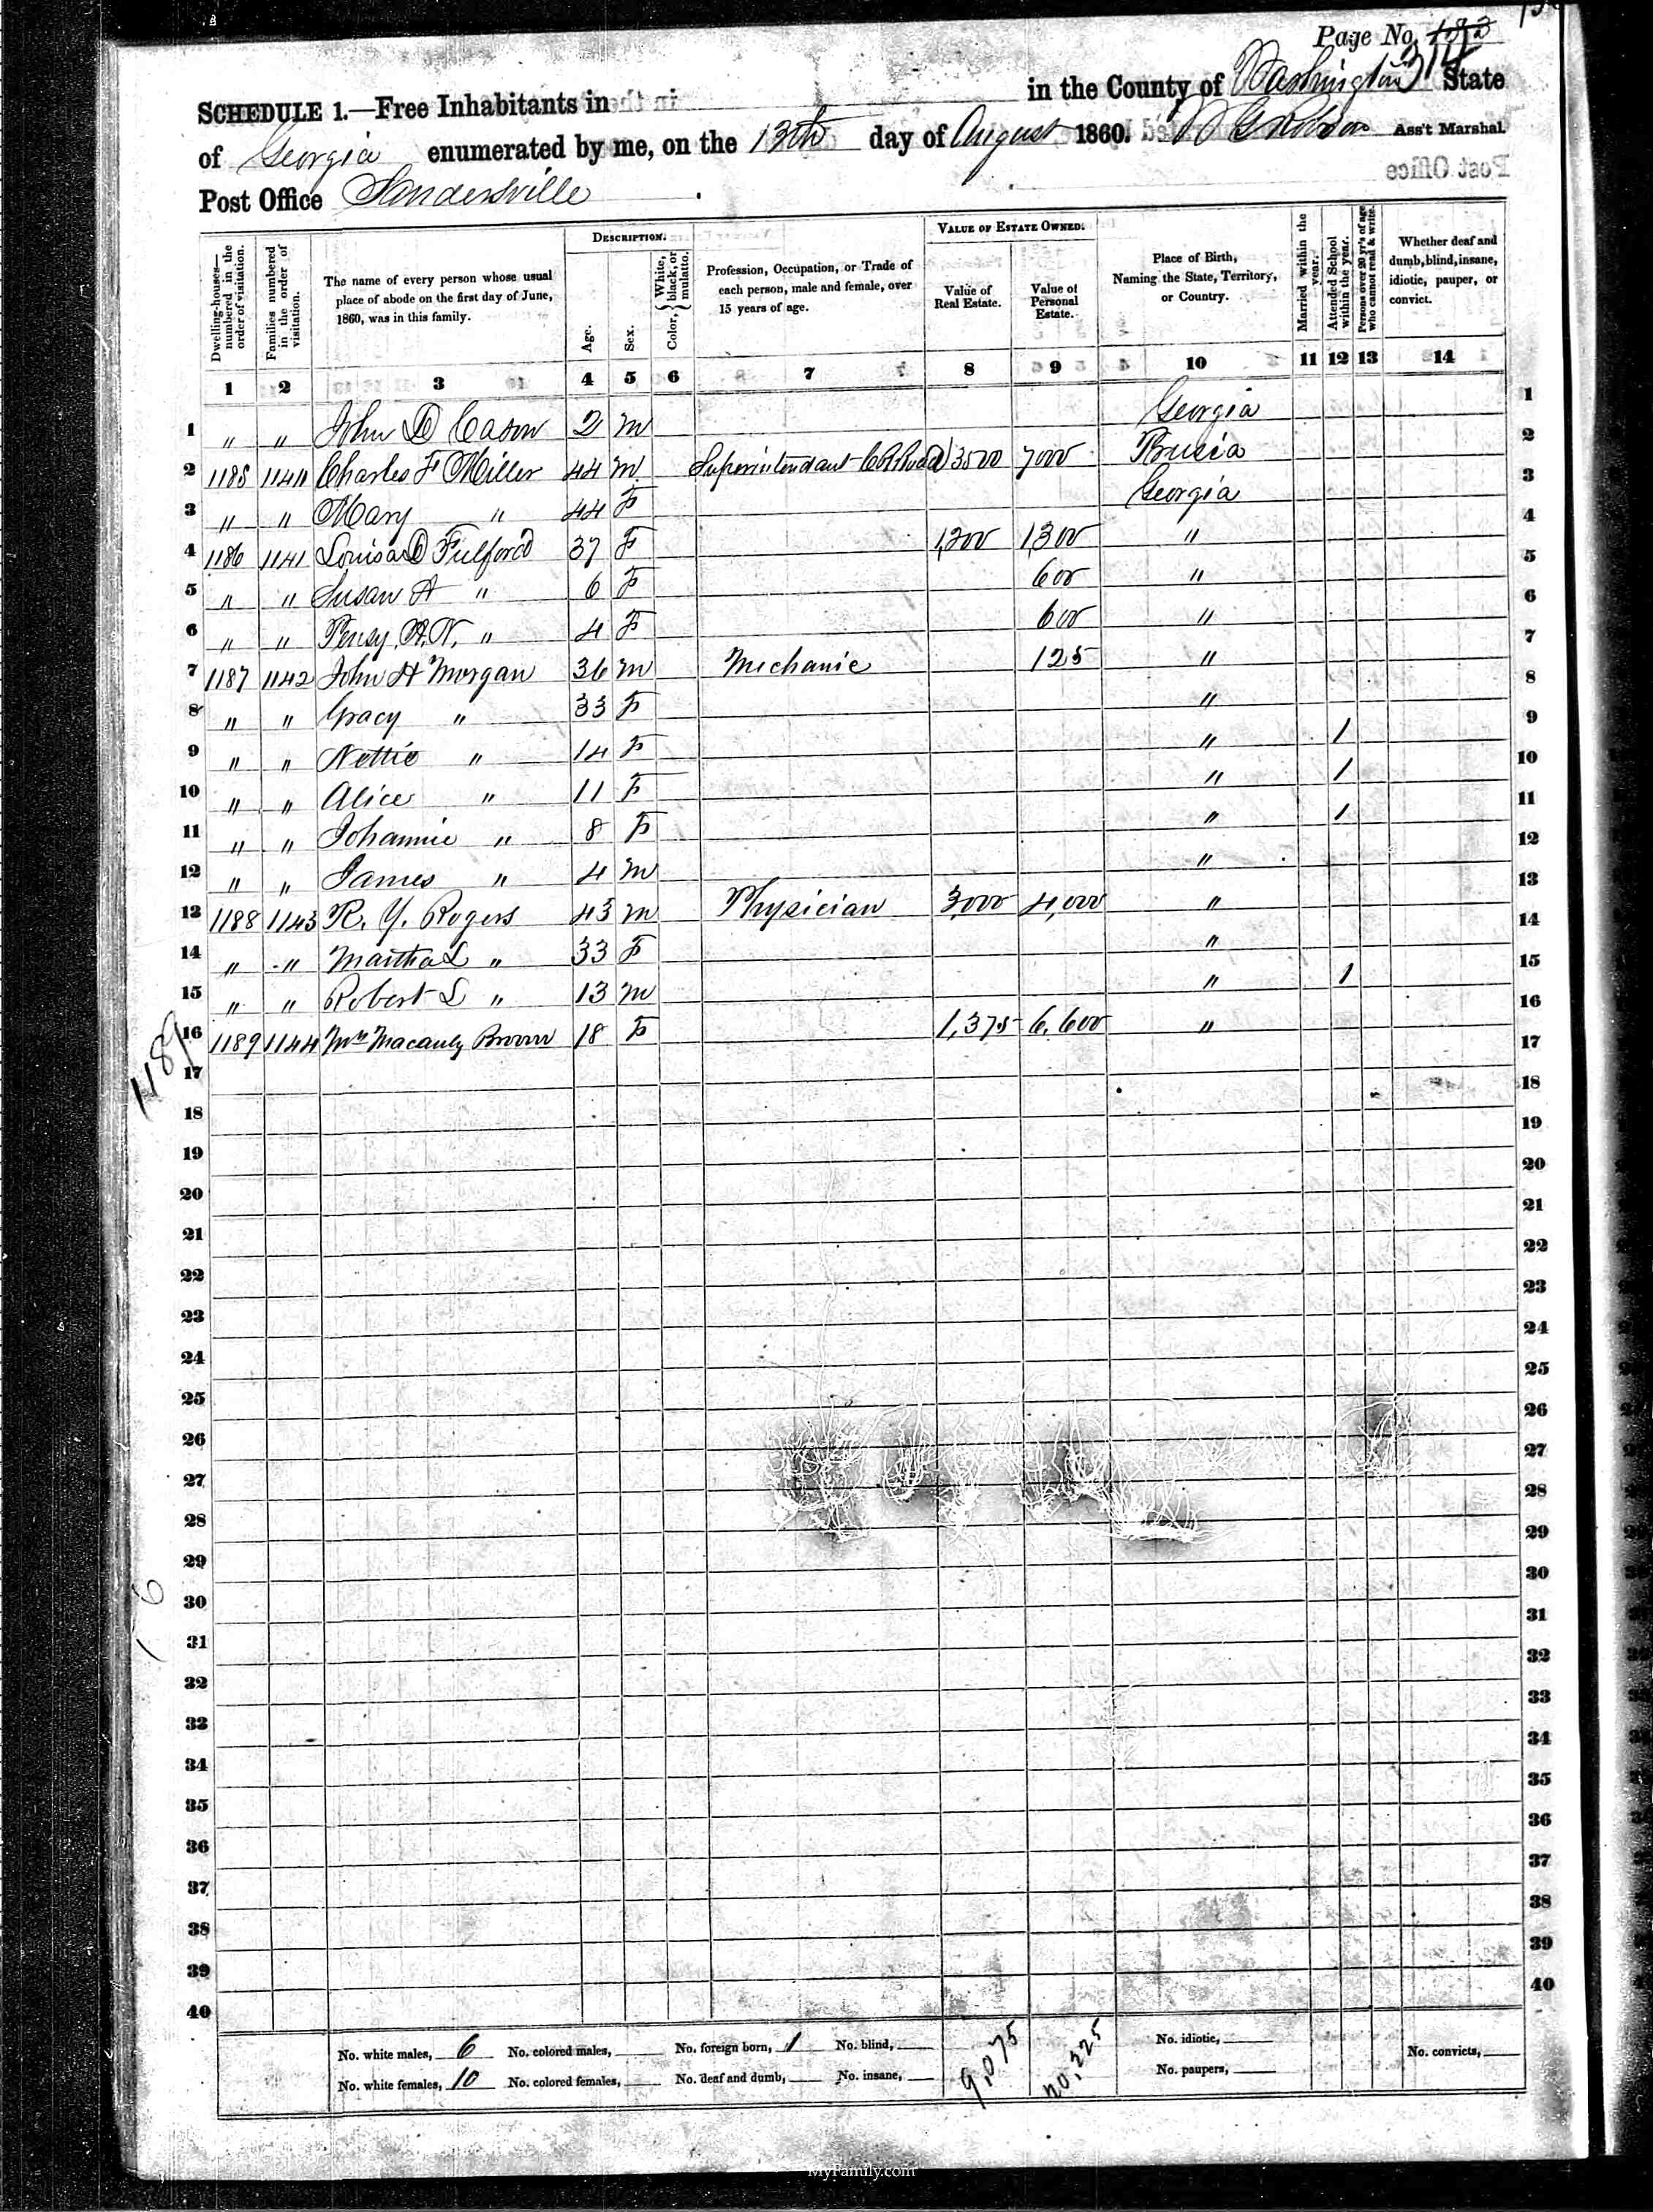 Page No. 183
SCHEDULE 1.—Free Inhabitants in in the County of Washington State
of Georgia enumerated by me, on the 13th day of August 1860. Ass't Marshal.
Post Office Sandersville
Post Office
Dwelling-houses—numbered in the order of visitation.
Families numbered in the order of visitation.
The name of every person whose usual place of abode on the first day of June, 1860, was in this family.
DESCRIPTION.
Age.
Sex.
Color, White, black, or mulatto.
Profession, Occupation, or Trade of each person, male and female, over 15 years of age.
VALUE OF ESTATE OWNED.
Value of Real Estate.
Value of Personal Estate.
Place of Birth, Naming the State, Territory, or Country.
Married within the year.
Attended School within the year.
Persons over 20 yr's of age who cannot read & write.
Whether deaf and dumb, blind, insane, idiotic, pauper, or convict.
1 2 3 4 5 6 7 8 9 10 11 12 13 14
1 " " John D Cason 2 m Georgia 1
2 1185 1140 Charles F Miller 44 m Superintendant C R Road 3500 7000 Prusia 2
3 " " Mary " 44 F Georgia 3
4 1186 1141 Louisa D Fulford 37 F 1,200 1,300 " 4
5 " " Susan A " 6 F 600 " 5
6 " " A. N. " 4 F 600 " 6
7 1187 1142 John H Morgan 36 m Mechanic 125 " 7
8 " " Gracy " 33 F " 8
9 " " Nettie " 14 F " 1 9
10 " " Alice " 11 F " 1 10
11 " " Johannie " 8 F " 1 11
12 " " James " 4 m " 12
13 1188 1143 R. Y. Rogers 43 m Physician 3,000 4,000 " 13
14 " " Martha L " 33 F " 14
15 " " Robert L " 13 m " 1 15
16 1189 1144 Mrs Macauly Brown 18 F 1,375 6,600 " 16
1189
17 17
18 18
19 19
20 20
21 21
22 22
23 23
24 24
25 25
26 26
27 27
28 28
29 29
30 30
31 31
32 32
33 33
34 34
35 35
36 36
37 37
38 38
39 39
40 40
No. white males, 6 No. colored males, No. foreign born, 1 No. blind, 9,075 20,225 No. idiotic, No. convicts,
No. white females, 10 No. colored females, No. deaf and dumb, No. insane, No. paupers,
MyFamily.com